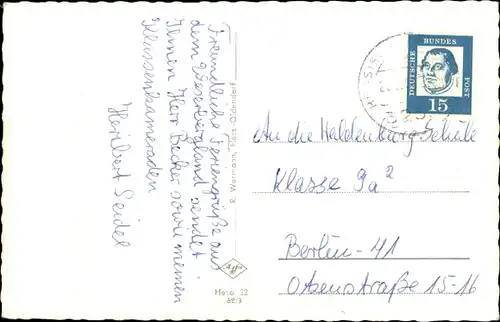 Freundliche Feriengrüße aus
dem Weserbergland sendet
Ihnen Herr Becker sowie meinen
Klassenkameraden
Heribert Seidel
R. Wiermann, Hess.-Oldendorf
Agfa
Heso 32
62/3
DEUTSCHE
BUNDES
POST
15
An die Haldenburg Schule
Klasse 9a²
Berlin-41
Otzenstraße 15-16